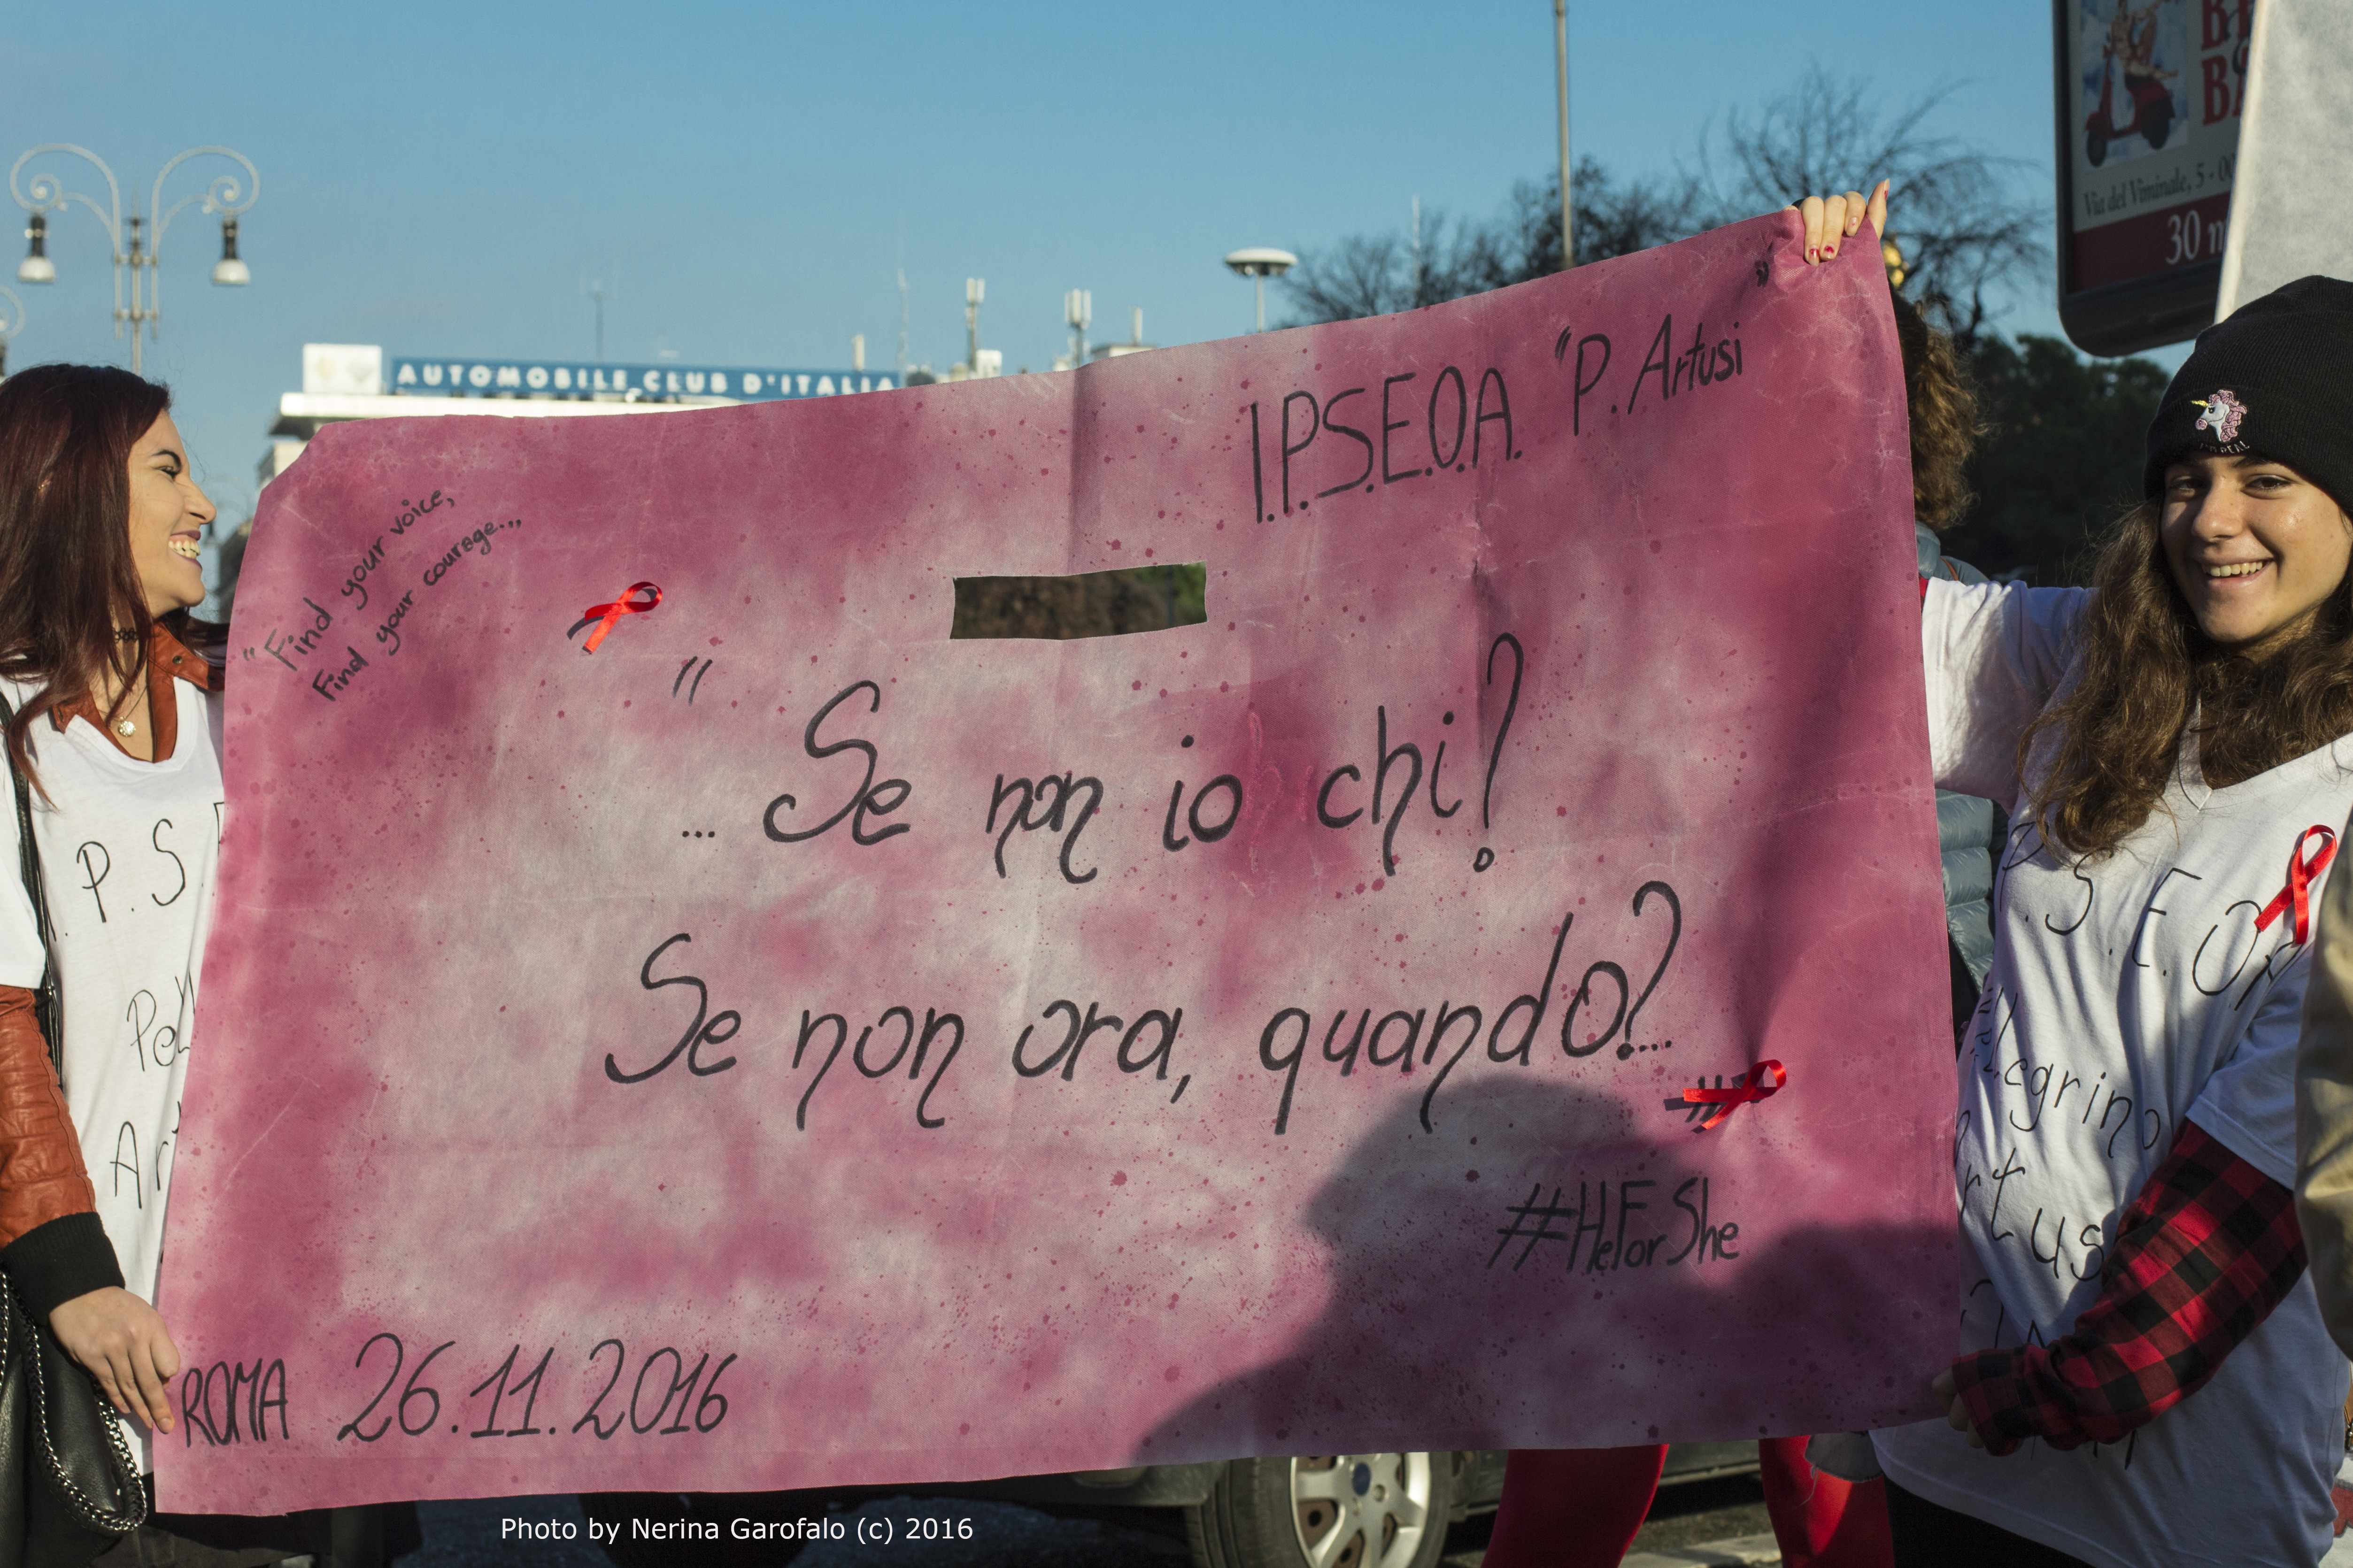 AUTOMOBILE CLUB D'ITALIA
Via del Viminale, 5 - 0
30
I.P.S.E.O.A. "P. Artusi"
"Find your voice,
Find your courage...
"... Se non io chi?
Se non ora, quando?..."
#HeForShe
ROMA 26.11.2016
P. S.
P.S.E.O.A
llegrino
rtus
Photo by Nerina Garofalo (c) 2016